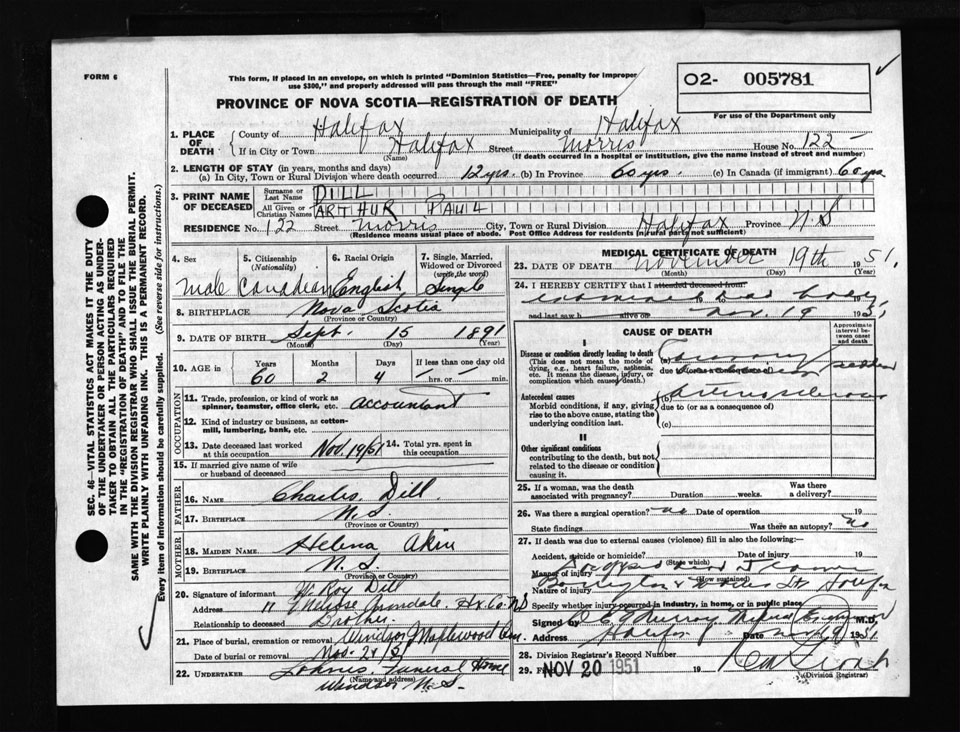 FORM 6
This form, if placed in an envelope, on which is printed "Dominion Statistics—Free, penalty for improper
use $300," and properly addressed will pass through the mail "FREE"
PROVINCE OF NOVA SCOTIA—REGISTRATION OF DEATH
O2- 005781
For use of the Department only
1. PLACE OF DEATH County of Halifax Municipality of Halifax
If in City or Town Halifax Street Morris House No. 122
(Name) (If death occurred in a hospital or institution, give the name instead of street and number)
2. LENGTH OF STAY (in years, months and days)
(a) In City, Town or Rural Division where death occurred 12 yrs. (b) In Province 60 yrs. (c) In Canada (if immigrant) 60 yrs
3. PRINT NAME OF DECEASED Surname or Last Name DILL
All Given or Christian Names ARTHUR PAUL
RESIDENCE No. 122 Street Morris City, Town or Rural Division Halifax Province N.S
(Residence means usual place of abode. Post Office Address for residents in rural parts not sufficient)
4. Sex 5. Citizenship (Nationality) 6. Racial Origin 7. Single, Married, Widowed or Divorced (write the word)
Male Canadian English Single
8. BIRTHPLACE Nova Scotia
(Province or Country)
9. DATE OF BIRTH Sept. 15 1891
(Month) (Day) (Year)
10. AGE in Years Months Days If less than one day old
60 2 4 hrs. or min.
OCCUPATION
11. Trade, profession, or kind of work as spinner, teamster, office clerk, etc. accountant
12. Kind of industry or business, as cotton-mill, lumbering, bank, etc.
13. Date deceased last worked at this occupation Nov. 19/51 14. Total yrs. spent in this occupation
15. If married give name of wife or husband of deceased
FATHER
16. NAME Charles Dill
17. BIRTHPLACE N.S.
(Province or Country)
MOTHER
18. MAIDEN NAME Helena
19. BIRTHPLACE N.S.
(Province or Country)
20. Signature of informant W. Roy Dill
Address Avondale. Hx. Co. N.S
Relationship to deceased Brother
21. Place of burial, cremation or removal Windsor Maplewood Cem.
Date of burial or removal Nov. 21/51
22. UNDERTAKER Funeral Home
Windsor N.S.
MEDICAL CERTIFICATE OF DEATH
23. DATE OF DEATH November 19th 1951
(Month) (Day) (Year)
24. I HEREBY CERTIFY that I attended deceased from
examined dead body
and last saw h alive on Nov. 19 1951
CAUSE OF DEATH
Approximate interval between onset and death
I
Disease or condition directly leading to death
(This does not mean the mode of dying, e.g., heart failure, asthenia, etc. It means the disease, injury, or complication which caused death.)
(a) Coronary sudden
due to
Antecedent causes
Morbid conditions, if any, giving rise to the above cause, stating the underlying condition last.
(b) arteriosclerosis
due to (or as a consequence of)
(c)
II
Other significant conditions
contributing to the death, but not related to the disease or condition causing it
25. If a woman, was the death associated with pregnancy? Duration weeks. Was there a delivery?
26. Was there a surgical operation? no Date of operation 19
State findings Was there an autopsy? no
27. If death was due to external causes (violence) fill in also the following:—
Accident, suicide or homicide? Date of injury 19
(State which)
Manner of injury Dropped dead
(How sustained)
Nature of injury Barrington St. Halifax
Specify whether injury occurred in industry, in home, or in public place
Signed by Murray Medical Examiner M.D.
Address Halifax Date 1951
28. Division Registrar's Record Number
29. Filed NOV 20 1951 19
(Division Registrar)
SEC. 46—VITAL STATISTICS ACT MAKES IT THE DUTY
OF THE UNDERTAKER OR PERSON ACTING AS UNDER-
TAKER TO OBTAIN ALL THE PARTICULARS REQUIRED
IN THE "REGISTRATION OF DEATH" AND TO FILE THE
SAME WITH THE DIVISION REGISTRAR WHO SHALL ISSUE THE BURIAL PERMIT.
WRITE PLAINLY WITH UNFADING INK. THIS IS A PERMANENT RECORD.
Every item of information should be carefully supplied. (See reverse side for instructions.)